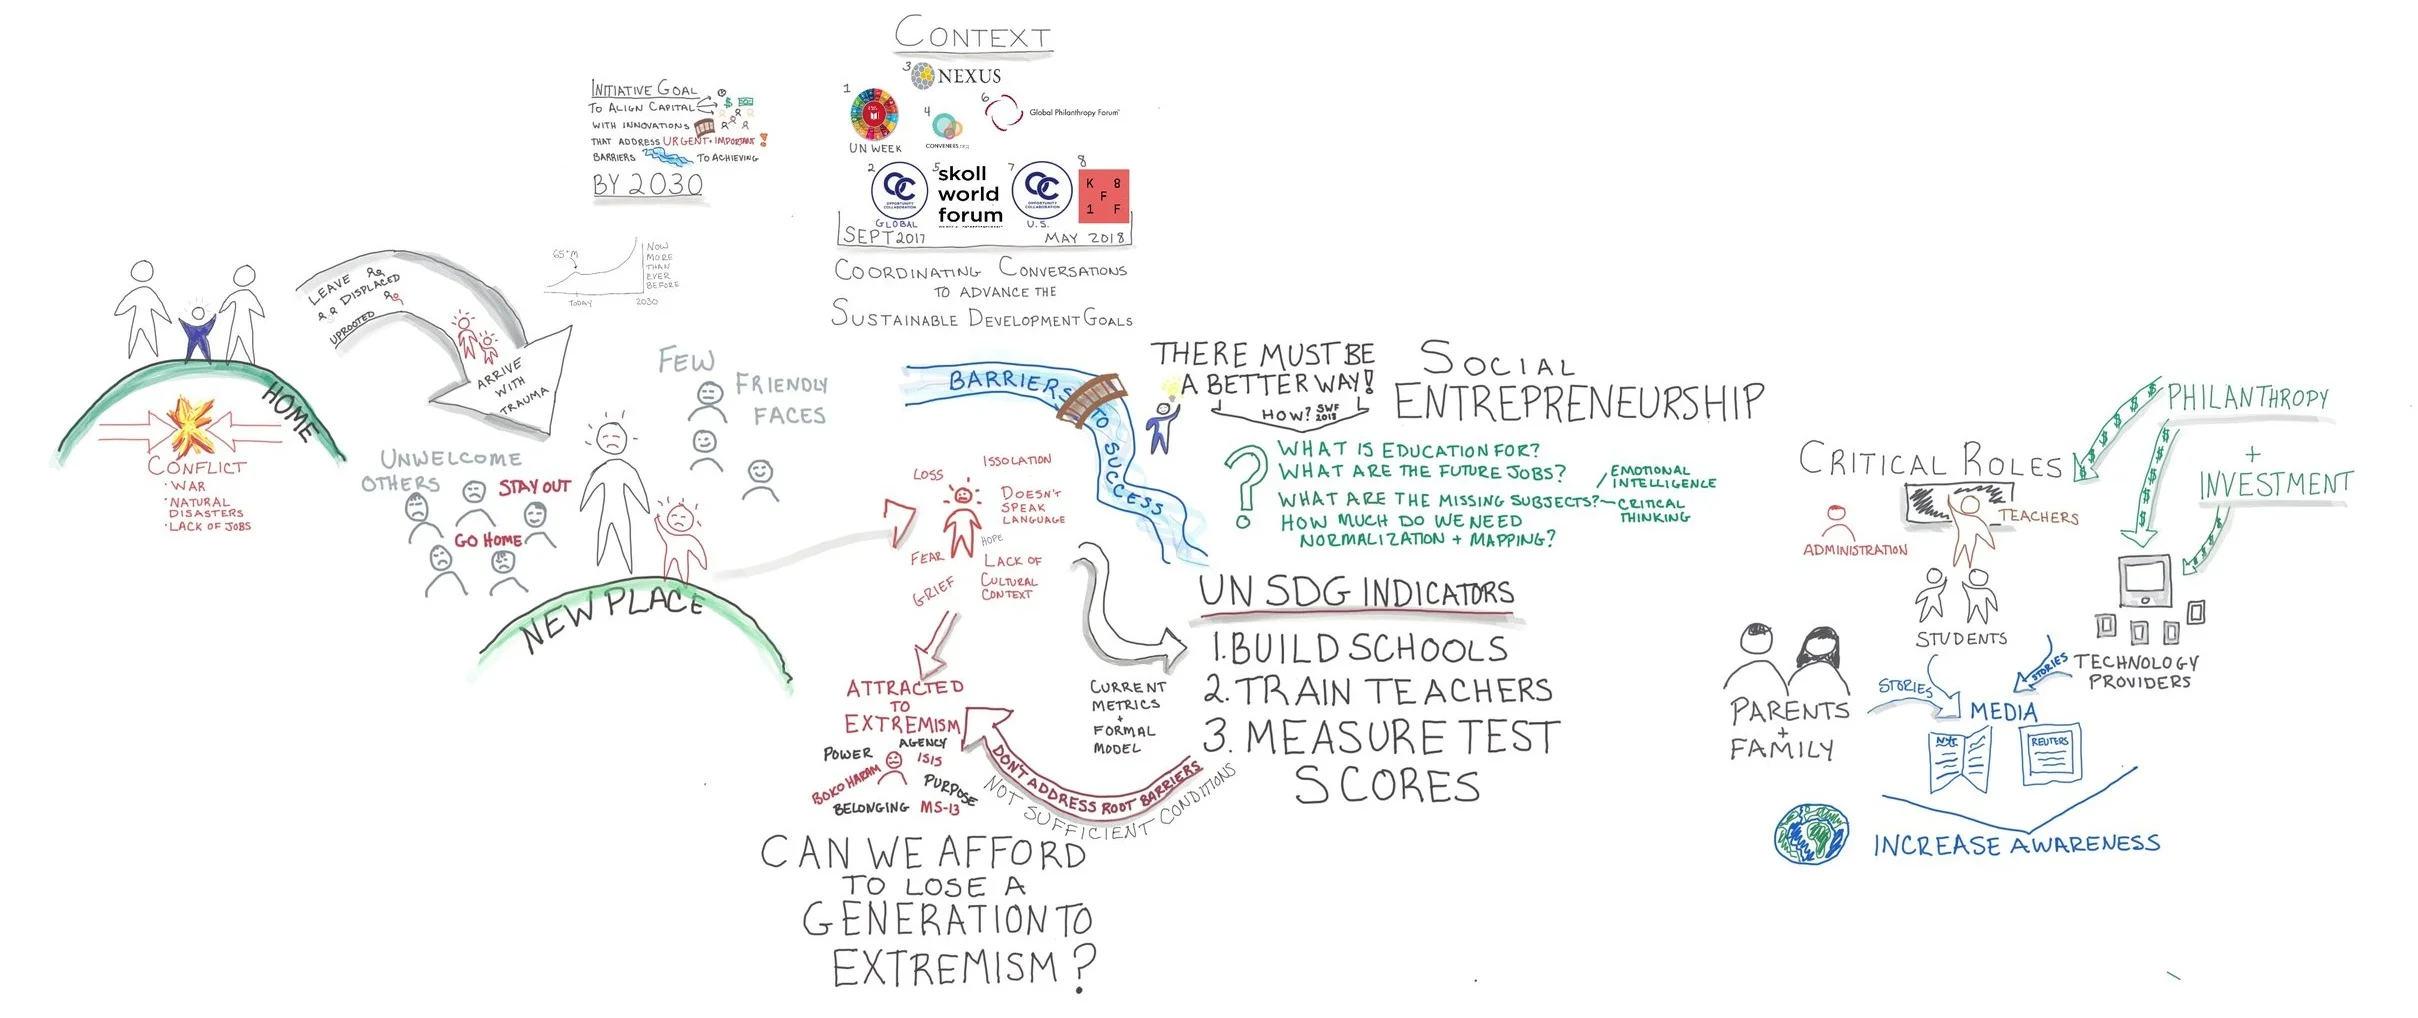 CONTEXT
3
NEXUS
1
UN WEEK
4
CONVENERS.ORG
6
Global Philanthropy Forum
2
OC
OPPORTUNITY
COLLABORATION
GLOBAL
5
skoll
world
forum
7
OC
OPPORTUNITY
COLLABORATION
U.S.
8
K 8
F
1 F
SEPT 2017
MAY 2018
COORDINATING CONVERSATIONS
TO ADVANCE THE
SUSTAINABLE DEVELOPMENT GOALS
INITIATIVE GOAL
TO ALIGN CAPITAL
WITH INNOVATIONS
THAT ADDRESS URGENT + IMPORTANT !
BARRIERS TO ACHIEVING
BY 2030
65+M
TODAY
2030
NOW
MORE
THAN
EVER
BEFORE
HOME
CONFLICT
· WAR
· NATURAL
DISASTERS
· LACK OF JOBS
LEAVE
DISPLACED
UPROOTED
ARRIVE
WITH
TRAUMA
UNWELCOME
OTHERS
STAY OUT
GO HOME
FEW
FRIENDLY
FACES
NEW PLACE
LOSS
ISSOLATION
DOESN'T
SPEAK
LANGUAGE
HOPE
FEAR
GRIEF
LACK OF
CULTURAL
CONTEXT
ATTRACTED
TO
EXTREMISM
POWER
AGENCY
ISIS
BOKO HARAM
PURPOSE
BELONGING
MS-13
CAN WE AFFORD
TO LOSE A
GENERATION TO
EXTREMISM?
BARRIERS TO SUCCESS
THERE MUST BE
A BETTER WAY!
HOW? SWF
2018
SOCIAL
ENTREPRENEURSHIP
?
WHAT IS EDUCATION FOR?
WHAT ARE THE FUTURE JOBS?
WHAT ARE THE MISSING SUBJECTS?
EMOTIONAL
INTELLIGENCE
CRITICAL
THINKING
HOW MUCH DO WE NEED
NORMALIZATION + MAPPING?
CURRENT
METRICS
+
FORMAL
MODEL
UN SDG INDICATORS
1. BUILD SCHOOLS
2. TRAIN TEACHERS
3. MEASURE TEST
SCORES
DON'T ADDRESS ROOT BARRIERS
NOT SUFFICIENT CONDITIONS
PHILANTHROPY
+
INVESTMENT
$ $ $ $ $
CRITICAL ROLES
ADMINISTRATION
TEACHERS
STUDENTS
PARENTS
+
FAMILY
TECHNOLOGY
PROVIDERS
STORIES
STORIES
MEDIA
NYT
REUTERS
INCREASE AWARENESS